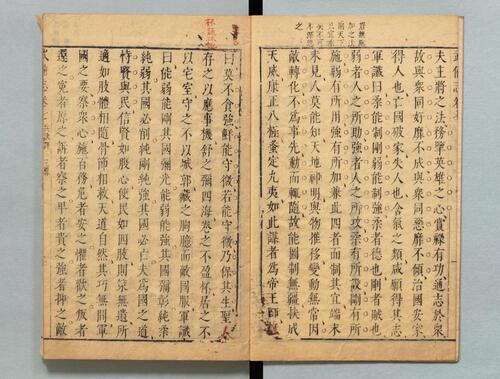 夫主將之法務攬英雄之心賞祿有功通志於衆
故與衆同好靡不成與衆同惡靡不傾治國安家
得人也亡國破家失人也含氣之類咸願得其志
軍讖曰柔能制剛弱能制強柔者德也剛者賊也
弱者人之所助強者人之所攻柔有所設剛有所
施弱有所用強有所加兼此四者而制其宜端末
未見人莫能知天地神明與物推移變動無常因
敵轉化不爲事先動而輒隨故能圖制無疆扶成
天威康正八極定九夷如此謀者爲帝王師故
曰莫不貪強鮮能守微若能守微乃保其生聖人
存之以應事機舒之彌四海卷之不盈懷居之不
以室宅守之不以城郭藏之胸臆而敵國服軍讖
曰能柔能剛其國彌光能弱能強其國彌彰純柔
純弱其國必削純剛純強其國必亡夫爲國之道
恃賢與民信賢如腹心使民如四肢則策無遺所
適如肢體相隨骨節相救天道自然其巧無間軍
國之要察衆心施百務危者安之懼者歡之叛者
還之冤者原之訴者察之卑者貴之強者抑之敵